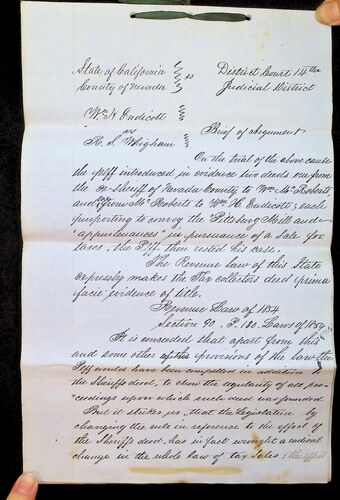 State of California
County of Nevada
ss
District Court 14th
Judicial District
Wm H Endicott
vs
R. S. Whigham
Brief of argument
On the trial of the above cause
the plff introduced in evidence two deeds one from
the Ex Sheriff of Nevada County to Wm McRoberts
and from McRoberts to Wm H. Endicott, each
purporting to convey the Pittsburg Mill and
"appurtenances" in pursuance of a sale for
taxes, the Plff then rested his case.
The Revenue law of this State
expressly makes the Tax collectors deed prima
facie evidence of title.
Revenue Law of 1854
Section 90. P. 120. Laws of 1854
It is conceded that apart from this
and some other provisions of the law the
Plff would have been compelled in addition to
the Sheriffs deed, to show the regularity of all pro-
ceedings upon which such deed was founded
But it strikes us, that the Legislature by
changing the rule in reference to the effect
of the Sheriffs deed, has in fact wrought a radical
change in the whole law of tax sales